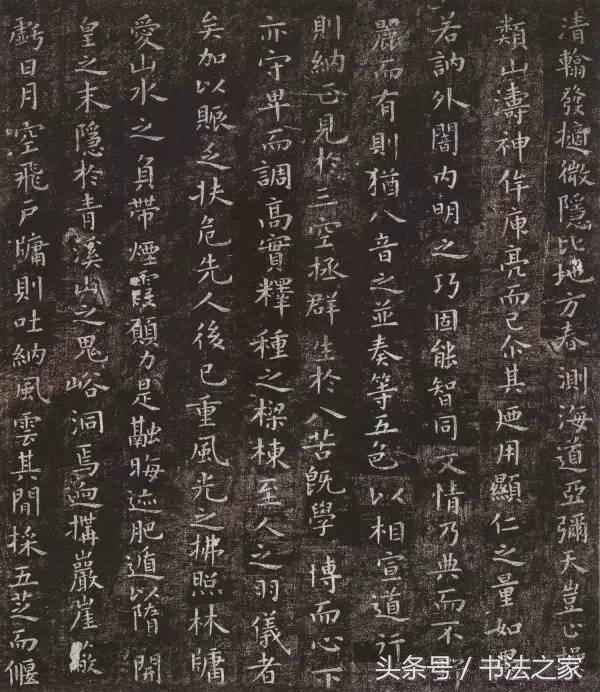 清翰發擿微隱比地方春測海道亞彌天豈止操
類山濤神侔庾亮而已尒其廼用顯仁之量如愚
若訥外闇内明之巧固能智同文情乃典而不
麗而有則猶八音之並奏等五色以相宣道行
則納正見於三空極群生於八苦既學博而心下
亦守卑而調高實釋種之樑棟至人之羽儀者
矣加以賑乏扶危先人後己重風光之拂照林牖
愛山水之負帶煙霞願力是融晦迹肥遁以隋開
皇之末隱於青溪山之鬼峪洞焉迺構巖崖
虧日月空飛戶牖則吐納風雲其間採五芝而偃
头条号／书法之家